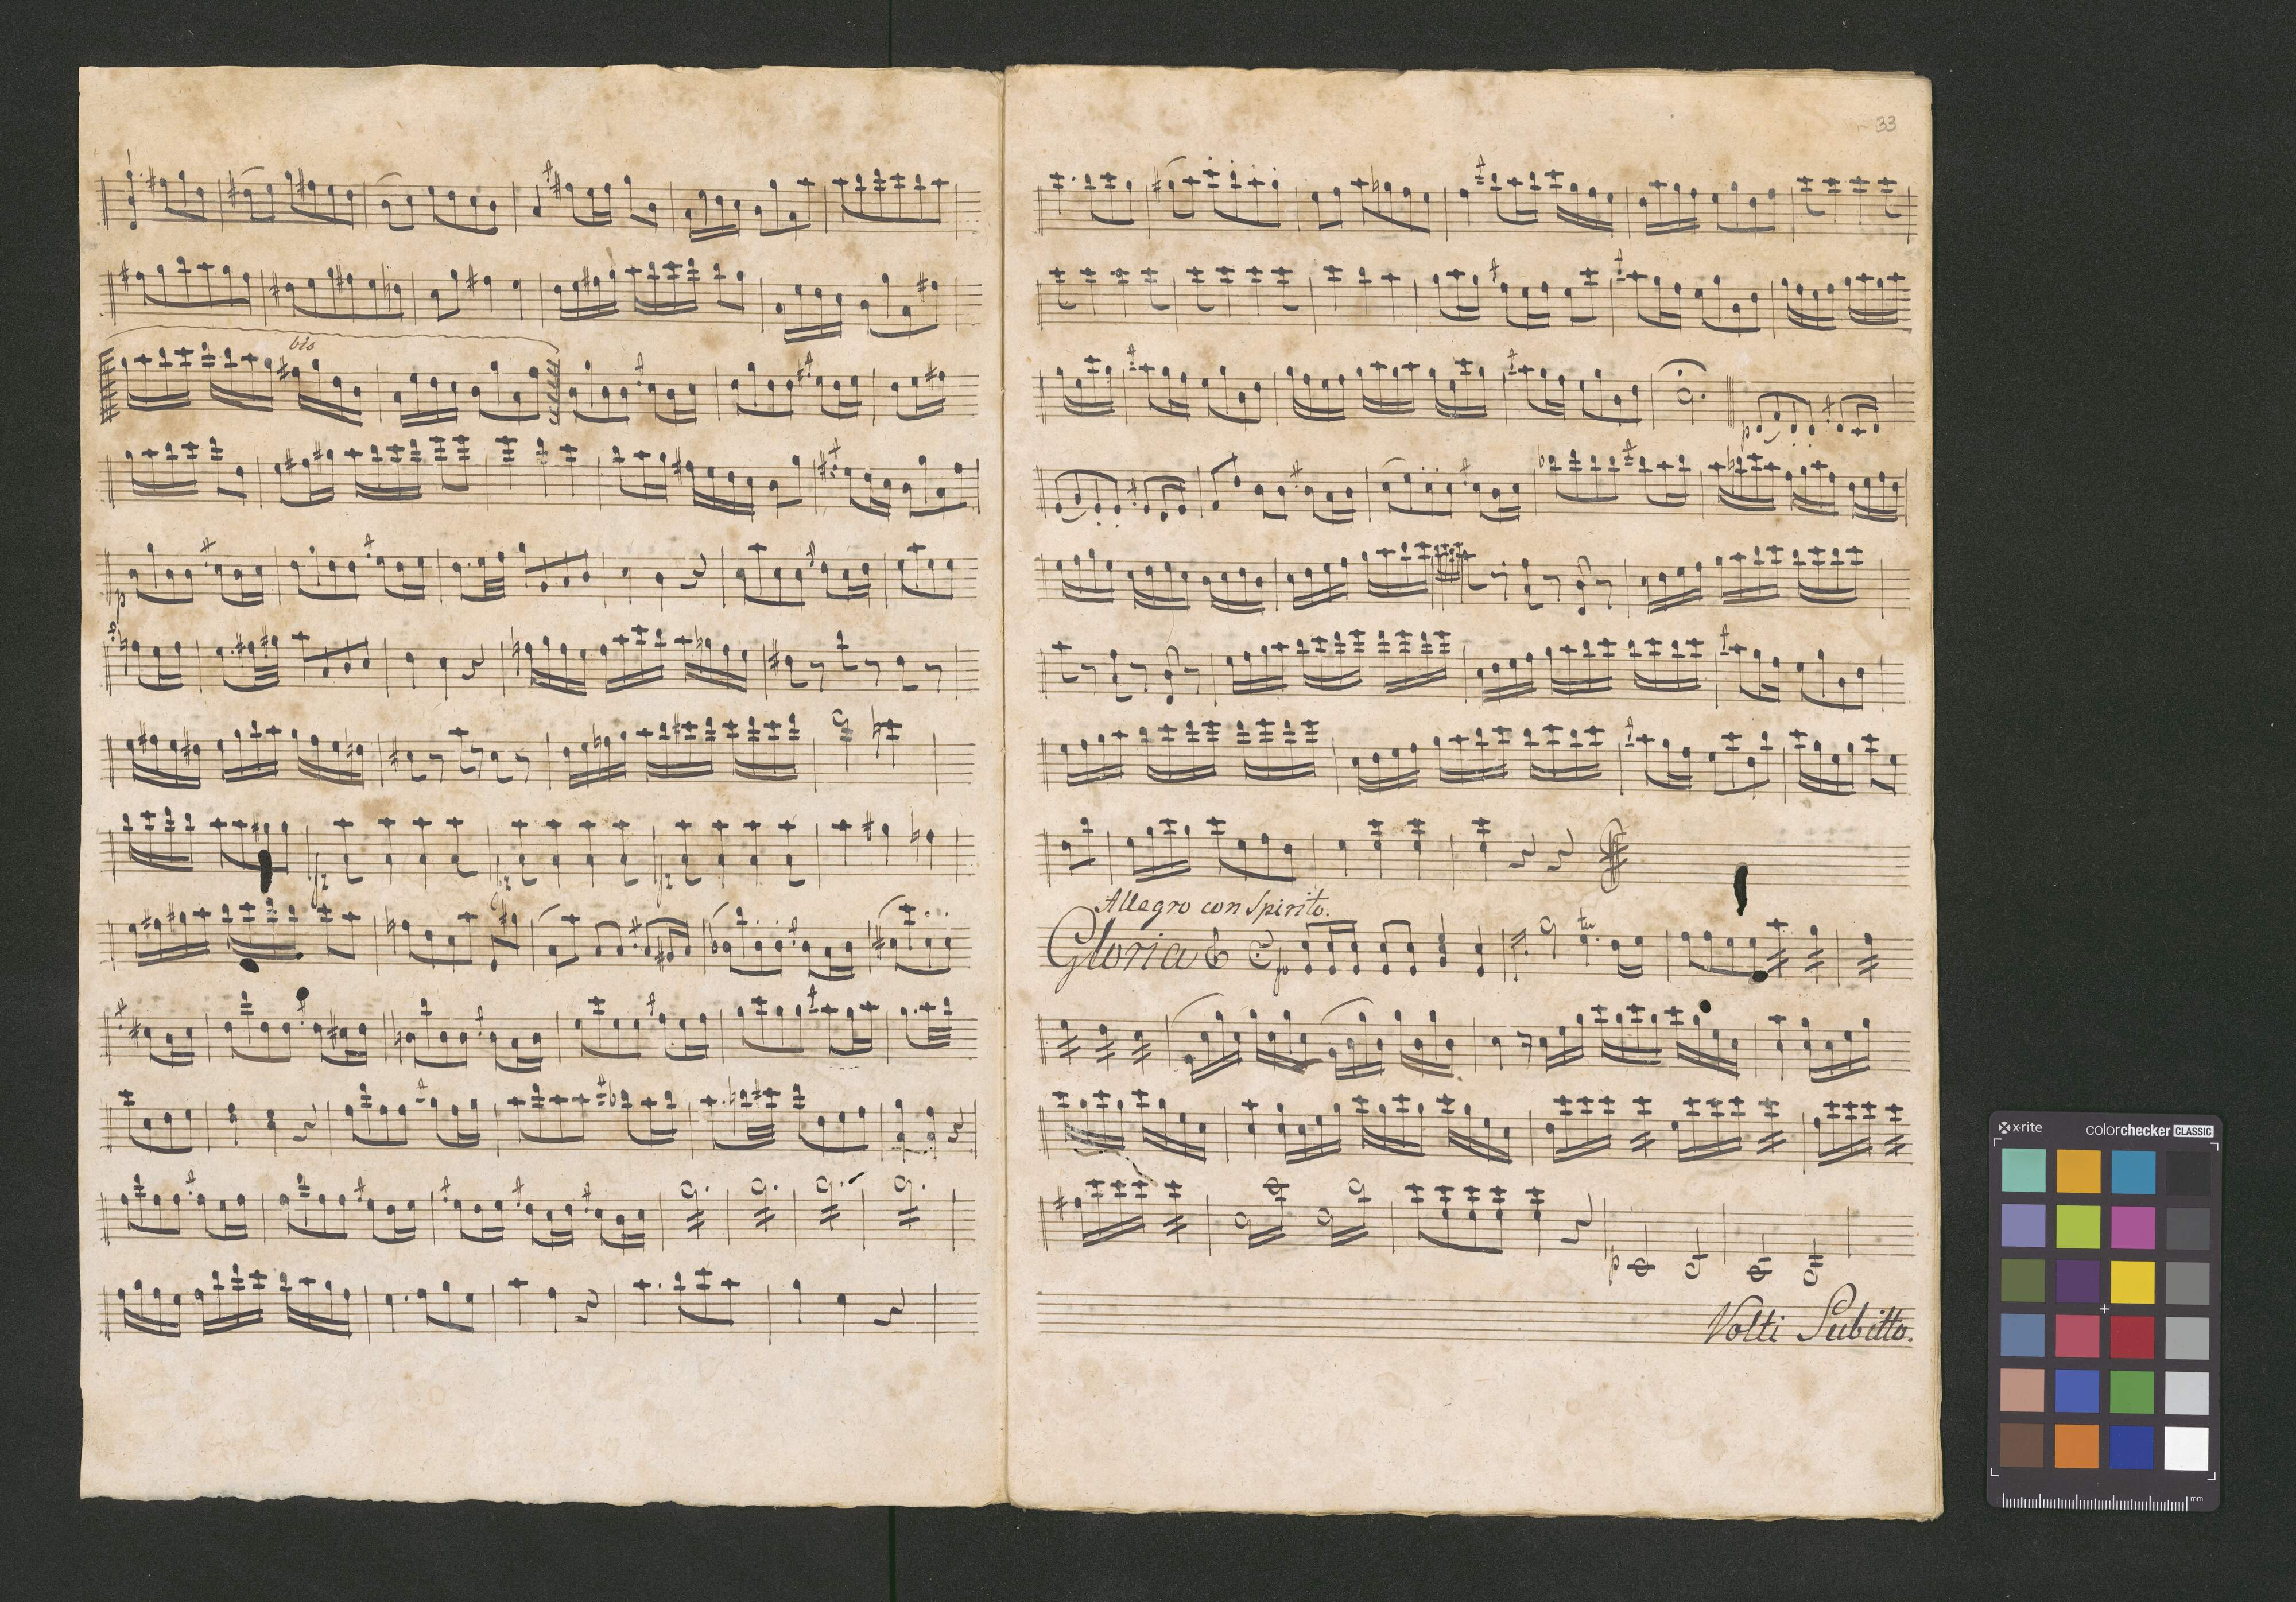 bis
p
33
p
Allegro con Spirito.
Gloria
tr
p
Volti Subitto.
x-rite
colorchecker CLASSIC
mm